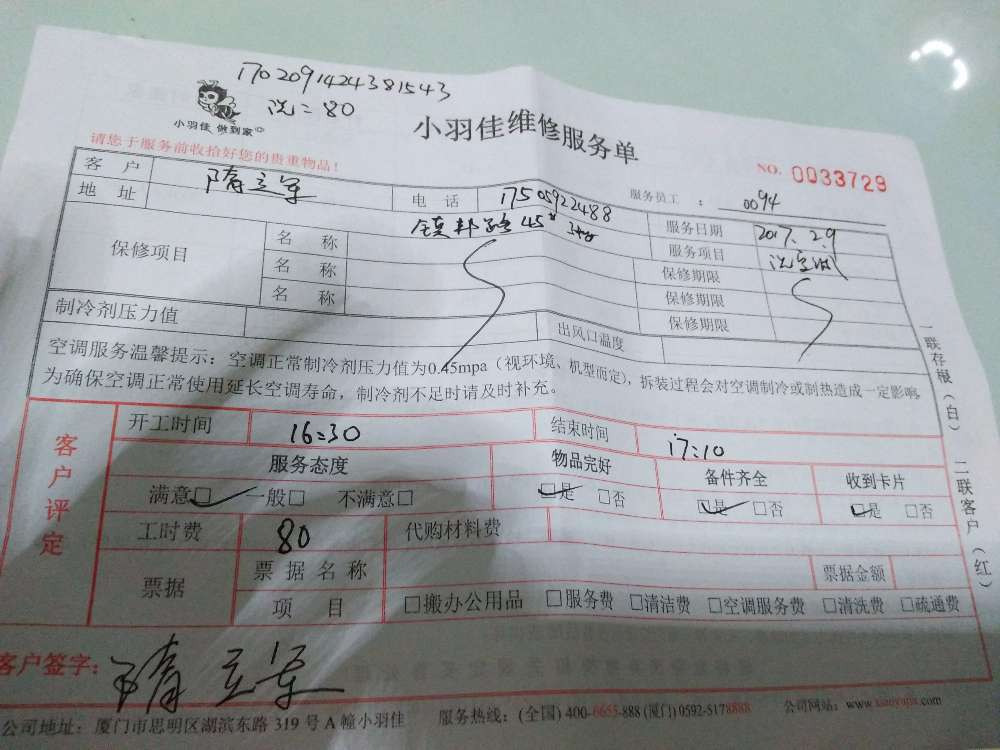 1702091424381543
洗：80
小羽佳 做到家
小羽佳维修服务单
请您于服务前收拾好您的贵重物品！
NO. 0033729
客 户 隋立军 电 话 17505922488 服务员工： 0094
地 址 镇邦路45# 服务日期 2017.2.9
保修项目 名 称 服务项目 洗空调
名 称 保修期限
名 称 保修期限
保修期限
制冷剂压力值 出风口温度
空调服务温馨提示：空调正常制冷剂压力值为0.45mpa（视环境、机型而定），拆装过程会对空调制冷或制热造成一定影响
为确保空调正常使用延长空调寿命，制冷剂不足时请及时补充。
客户评定
开工时间 16:30 结束时间 17:10
服务态度 物品完好 备件齐全 收到卡片
满意□ 一般□ 不满意□ □是 □否 □是 □否 □是 □否
工时费 80 代购材料费
票据 票据名称 票据金额
项 目 □搬办公用品 □服务费 □清洁费 □空调服务费 □清洗费 □疏通费
客户签字： 隋立军
公司地址：厦门市思明区湖滨东路 319 号 A 幢小羽佳 服务热线：(全国) 400-6655-888 (厦门) 0592-5178888 公司网站：www.xiaoyujia.com
一联存根（白） 二联客户（红）